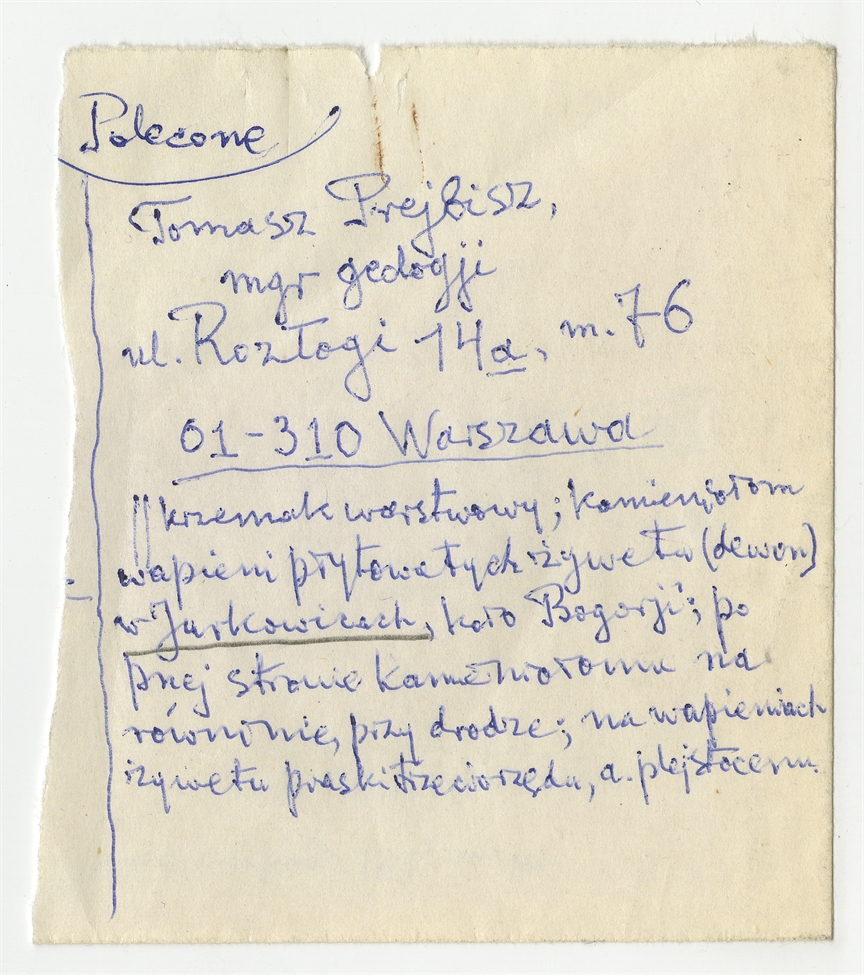 Polecone
Tomasz Prejbisz,
mgr geologji
ul. Rozłogi 14a, m. 76
01-310 Warszawa
|| krzemak warstwowy; kamieniołom
wapieni płytowatych żywetu (dewon)
w Jurkowicach, koło Bogorji; po
płnej stronie kamieniołomu na
równinie, przy drodze; na wapieniach
żywetu piaski trzeciorzędu, a. plejstocenu.